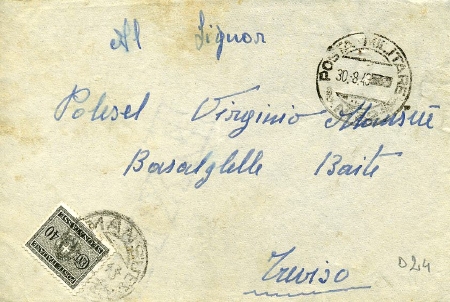 Al Signor
POSTA MILITARE
30.8.43
Polesel Virginio Mansuè
Basalghelle Baite
Treviso
MANSUE
D24